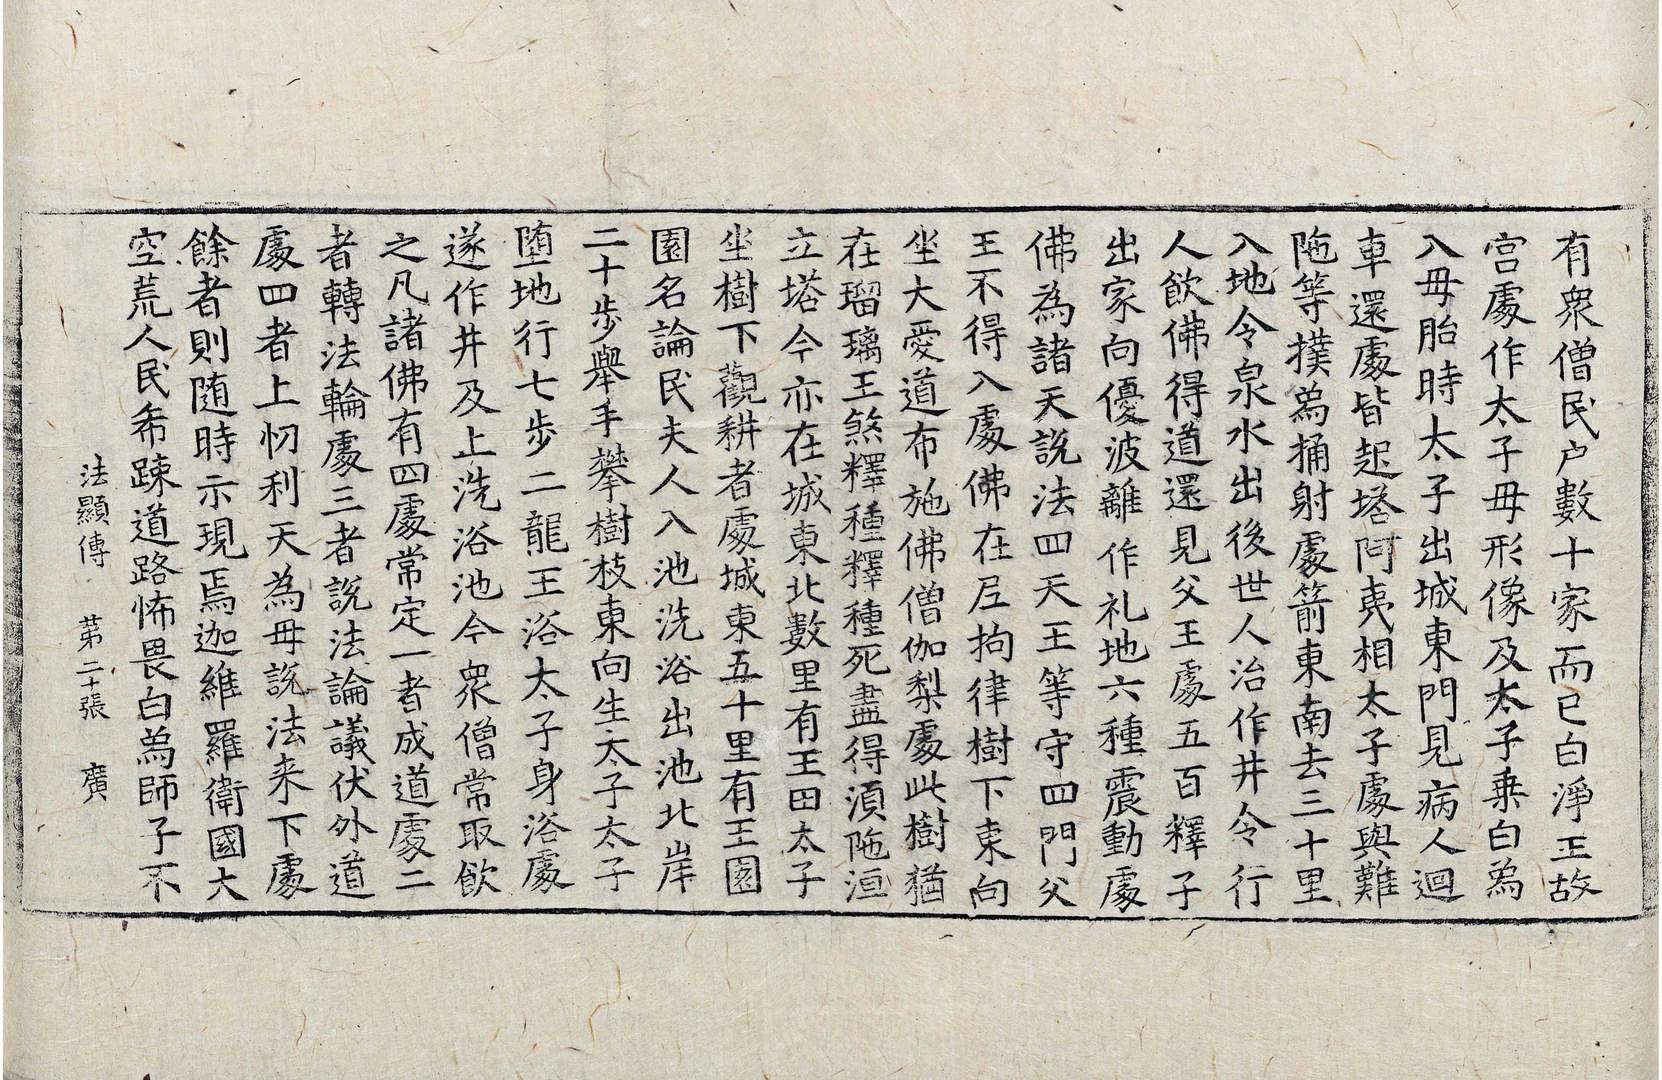 有衆僧民户數十家而已白淨王故
宫處作太子母形像及太子乗白為
入母胎時太子出城東門見病人迴
車還處皆起塔阿夷相太子處與難
陁等撲為捅射處箭東南去三十里
入地令泉水出後世人治作井令行
人飲佛得道還見父王處五百釋子
出家向優波離作礼地六種震動處
佛為諸天說法四天王等守四門父
王不得入處佛在尼拘律樹下東向
坐大愛道布施佛僧伽梨處此樹猶
在瑠璃王煞釋種釋種死盡得湏陁洹
立塔今亦在城東北數里有王田太子
坐樹下觀耕者處城東五十里有王園
園名論民夫人入池洗浴出池北岸
二十步舉手攀樹枝東向生太子太子
堕地行七步二龍王浴太子身浴處
遂作井及上洗浴池今衆僧常取飲
之凡諸佛有四處常定一者成道處二
者轉法輪處三者說法論議伏外道
處四者上忉利天為母說法来下處
餘者則随時示現焉迦維羅衛國大
空荒人民希踈道路怖畏白為師子不
法顯傳 苐二十張 廣